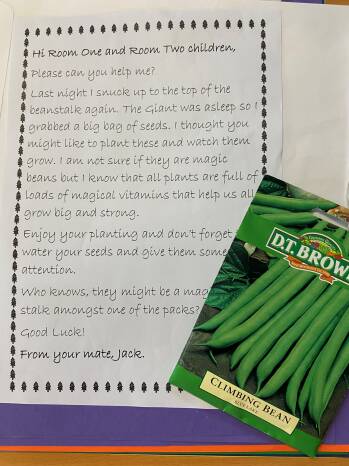 Hi Room One and Room Two children,
Please can you help me?
Last night I snuck up to the top of the
beanstalk again. The Giant was asleep so I
grabbed a big bag of seeds. I thought you
might like to plant these and watch them
grow. I am not sure if they are magic
beans but I know that all plants are full of
loads of magical vitamins that help us all
grow big and strong.
Enjoy your planting and don't forget
water your seeds and give them some
attention.
Who knows, they might be a mag
stalk amongst one of the packs?
Good Luck!
From your mate, Jack.
D.T. BROW
CLIMBING BEAN